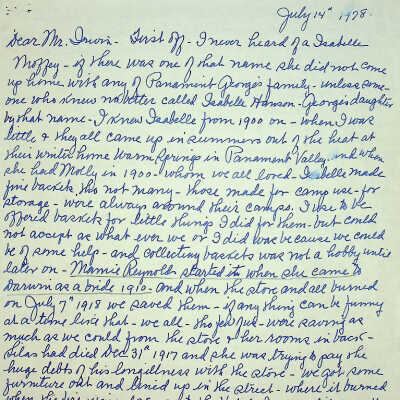 July 14th 1978.
Dear Mr. Irwin - First off - I never heard of a Isabelle
Moffey - if there was one of that name she did not come
up home with any of Panament George's family - unless some-
one who knew no better called Isabelle Hanson - George's daughter
by that name - I knew Isabelle from 1900 on - when I was
little & they all came up in summers out of the heat at
their winter home Warm Springs in Panament Valley. and when
she had Molly in 1900 - whom we all loved - Isabelle made
fine baskets tho not many - those made for camp use - for
storage - were always around their camps. I use to be
offered baskets for little things I did for them - but could
not accept as what ever we or I did was because we could
be of some help - and collecting baskets was not a hobby until
later on - Mamie Reynolds started it when she came to
Darwin as a bride 1910 - and when the store and all burned
on July 7th 1918 we saved them - if any thing can be funny
at a time like that - we all - tho few - were saving as
much as we could from the store & her rooms in back -
Silas had died Dec 31st 1917 and she was trying to pay the
huge debts of his long illness with the store - we got some
furniture out and lined up in the street - where it burned